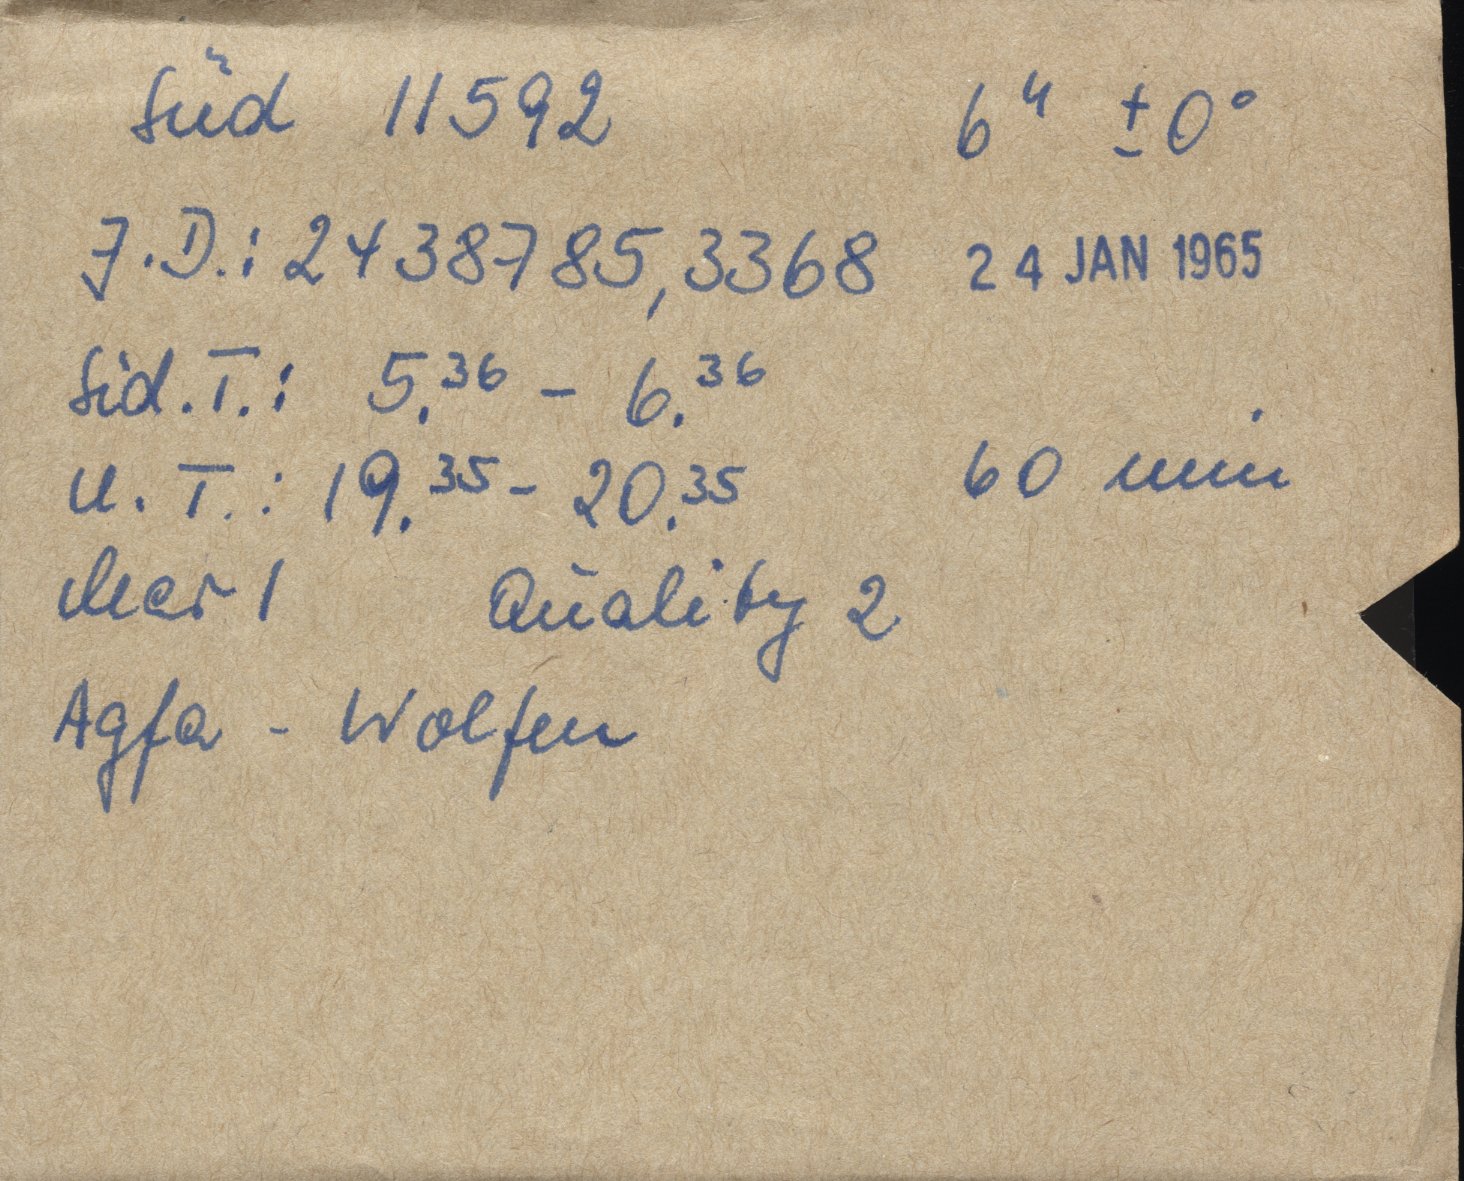 Süd 11592 6ʰ ±0°
J.D.: 2438785,3368 24 JAN 1965
Sid.T.: 5.36 - 6.36
U.T.: 19.35 - 20.35 60 min
clear 1 Quality 2
Agfa - Wolfen